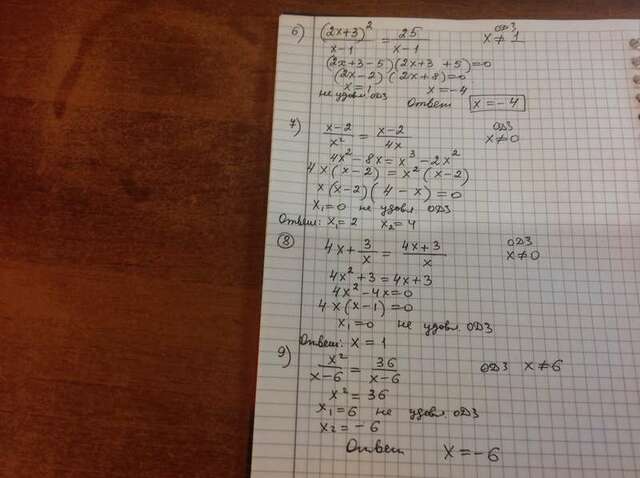 6) (2x+3)²/(x-1) = 25/(x-1) ОДЗ x≠1
(2x+3-5)(2x+3+5)=0
(2x-2)(2x+8)=0
x=1 x=-4
не удовл ОДЗ Ответ x=-4
7) (x-2)/x² = (x-2)/4x ОДЗ x≠0
4x²-8x=x³-2x²
4x(x-2)=x²(x-2)
x(x-2)(4-x)=0
x₁=0 не удовл ОДЗ
Ответ: x₁=2 x₂=4
8) 4x+3/x = (4x+3)/x ОДЗ x≠0
4x²+3=4x+3
4x²-4x=0
4x(x-1)=0
x₁=0 не удовл ОДЗ
Ответ: x=1
9) x²/(x-6) = 36/(x-6) ОДЗ x≠6
x²=36
x₁=6 не удовл. ОДЗ
x₂=-6
Ответ x=-6